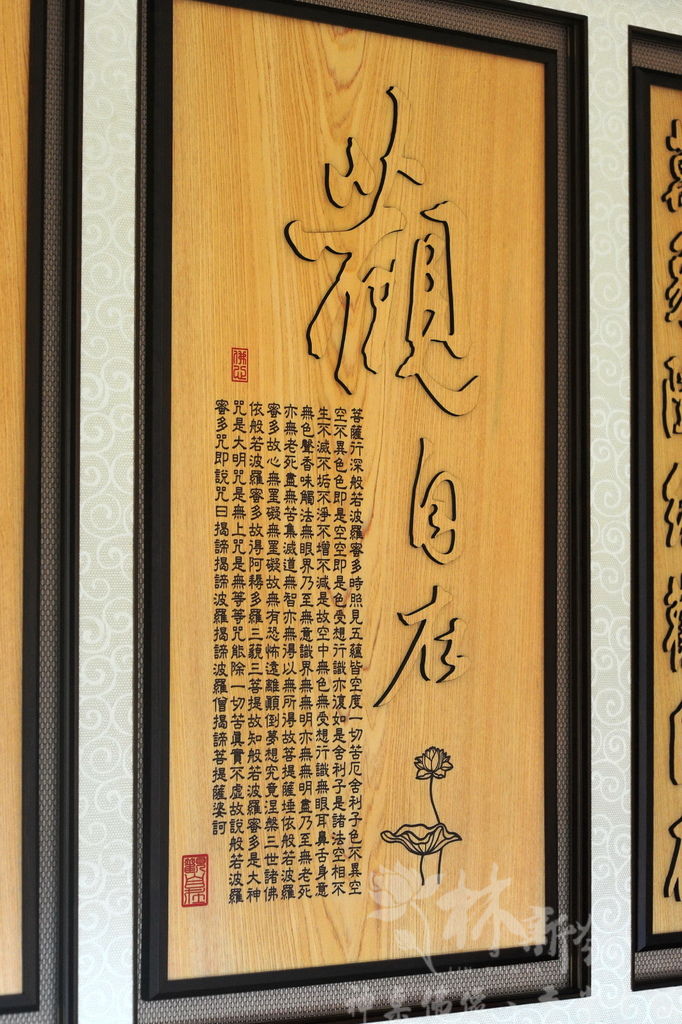 觀自在
菩薩行深般若波羅蜜多時照見五蘊皆空度一切苦厄舍利子色不異空
空不異色色即是空空即是色受想行識亦復如是舍利子是諸法空相不
生不滅不垢不淨不增不減是故空中無色無受想行識無眼耳鼻舌身意
無色聲香味觸法無眼界乃至無意識界無無明亦無無明盡乃至無老死
亦無老死盡無苦集滅道無智亦無得以無所得故菩提薩埵依般若波羅
蜜多故心無罣礙無罣礙故無有恐怖遠離顛倒夢想究竟涅槃三世諸佛
依般若波羅蜜多故得阿耨多羅三藐三菩提故知般若波羅蜜多是大神
咒是大明咒是無上咒是無等等咒能除一切苦真實不虛故說般若波羅
蜜多咒即說咒曰揭諦揭諦波羅揭諦波羅僧揭諦菩提薩婆訶
林新